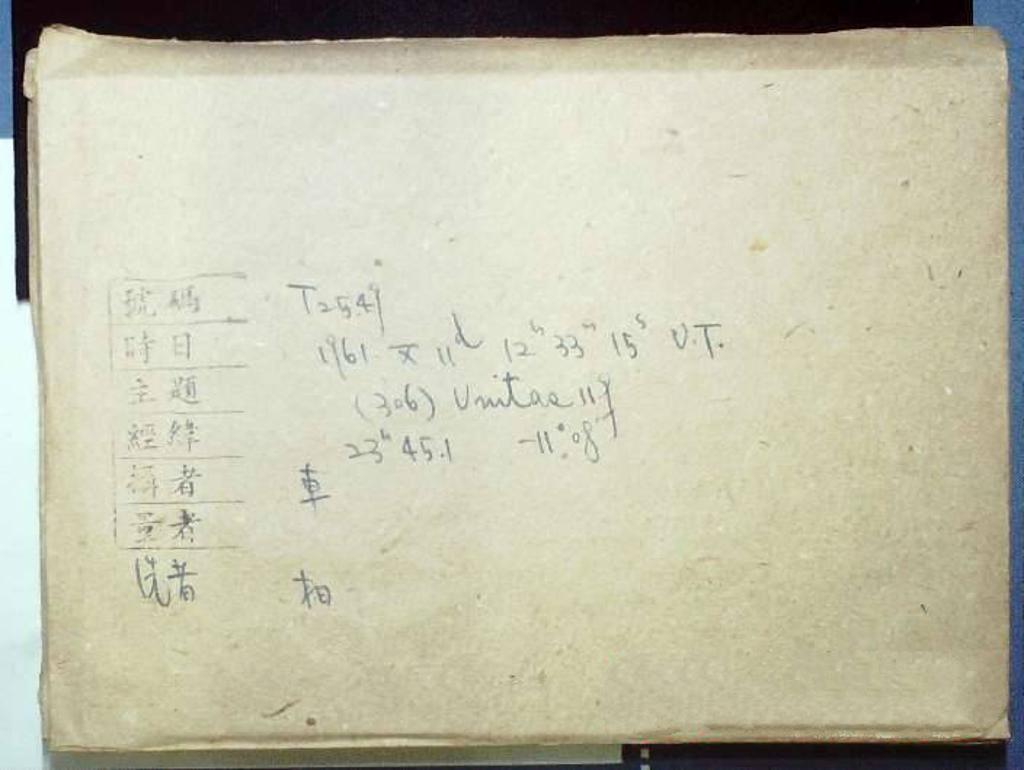 號碼 T2549
時日 1961 X 11ᵈ 12ʰ 33ᵐ 15ˢ U.T.
主題 (306) Unitas 11.9
經緯 23ʰ 45.1 -11°.08
攝者 車
量者
洗者 相